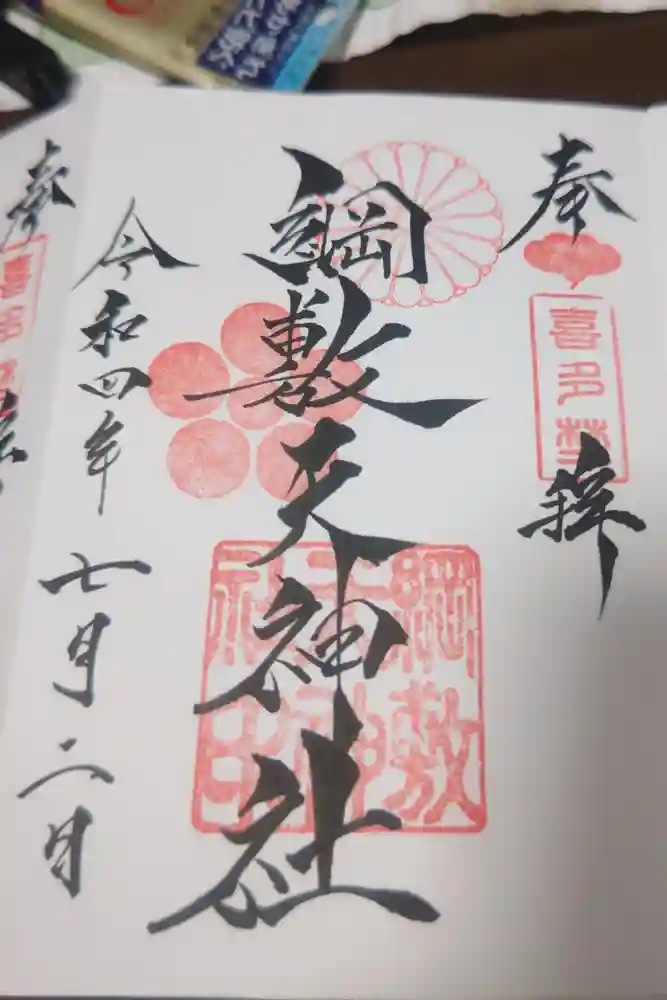 奉拝
喜多埜
綱敷天神社
綱敷
天神
社印
令和四年七月二日
奉
喜多